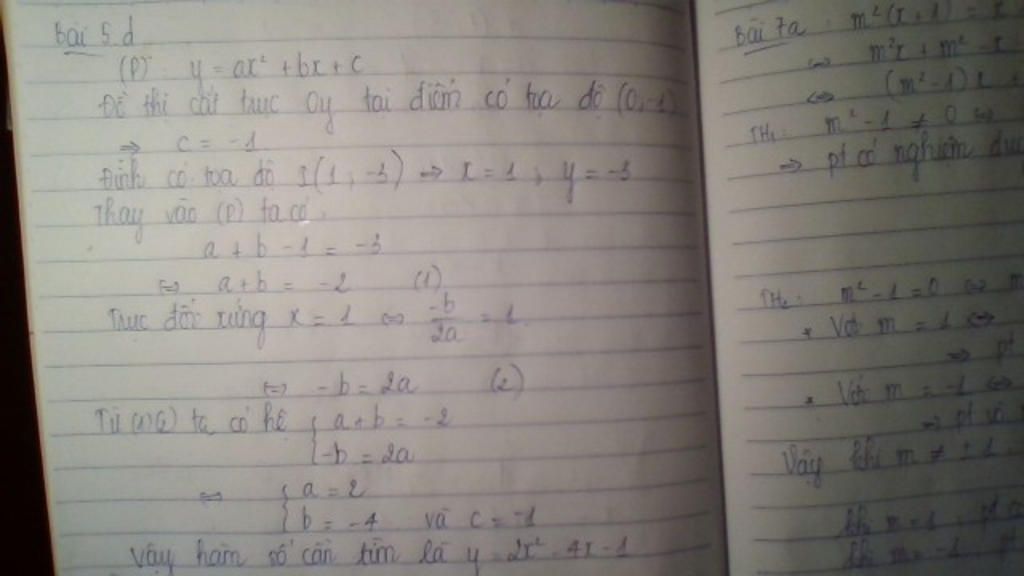 Bài 5.d
(P): y = ax² + bx + c
Đồ thị cắt trục Oy tại điểm có tọa độ (0,-1)
⇒ c = -1
Đỉnh có tọa độ I(1; -3) ⇒ x = 1; y = -3
Thay vào (P) ta có:
a + b - 1 = -3
⇔ a + b = -2 (1)
Trục đối xứng x = 1 ⇔ -b/2a = 1
⇔ -b = 2a (2)
Từ (1)(2) ta có hệ { a + b = -2
-b = 2a
⇔ { a = 2
b = -4 và c = -1
Vậy hàm số cần tìm là y = 2x² - 4x - 1
Bài 7a: m²(x+1) = x
⇔ m²x + m² - x
⇔ (m² - 1)x +
TH1: m² - 1 ≠ 0 ⇔
⇒ pt có nghiệm duy
TH2: m² - 1 = 0 ⇔ m
* Với m = 1 ⇔
⇒ pt
* Với m = -1 ⇔
⇒ pt vô
Vậy khi m ≠ ±1
khi m = 1, pt
khi m = -1 pt